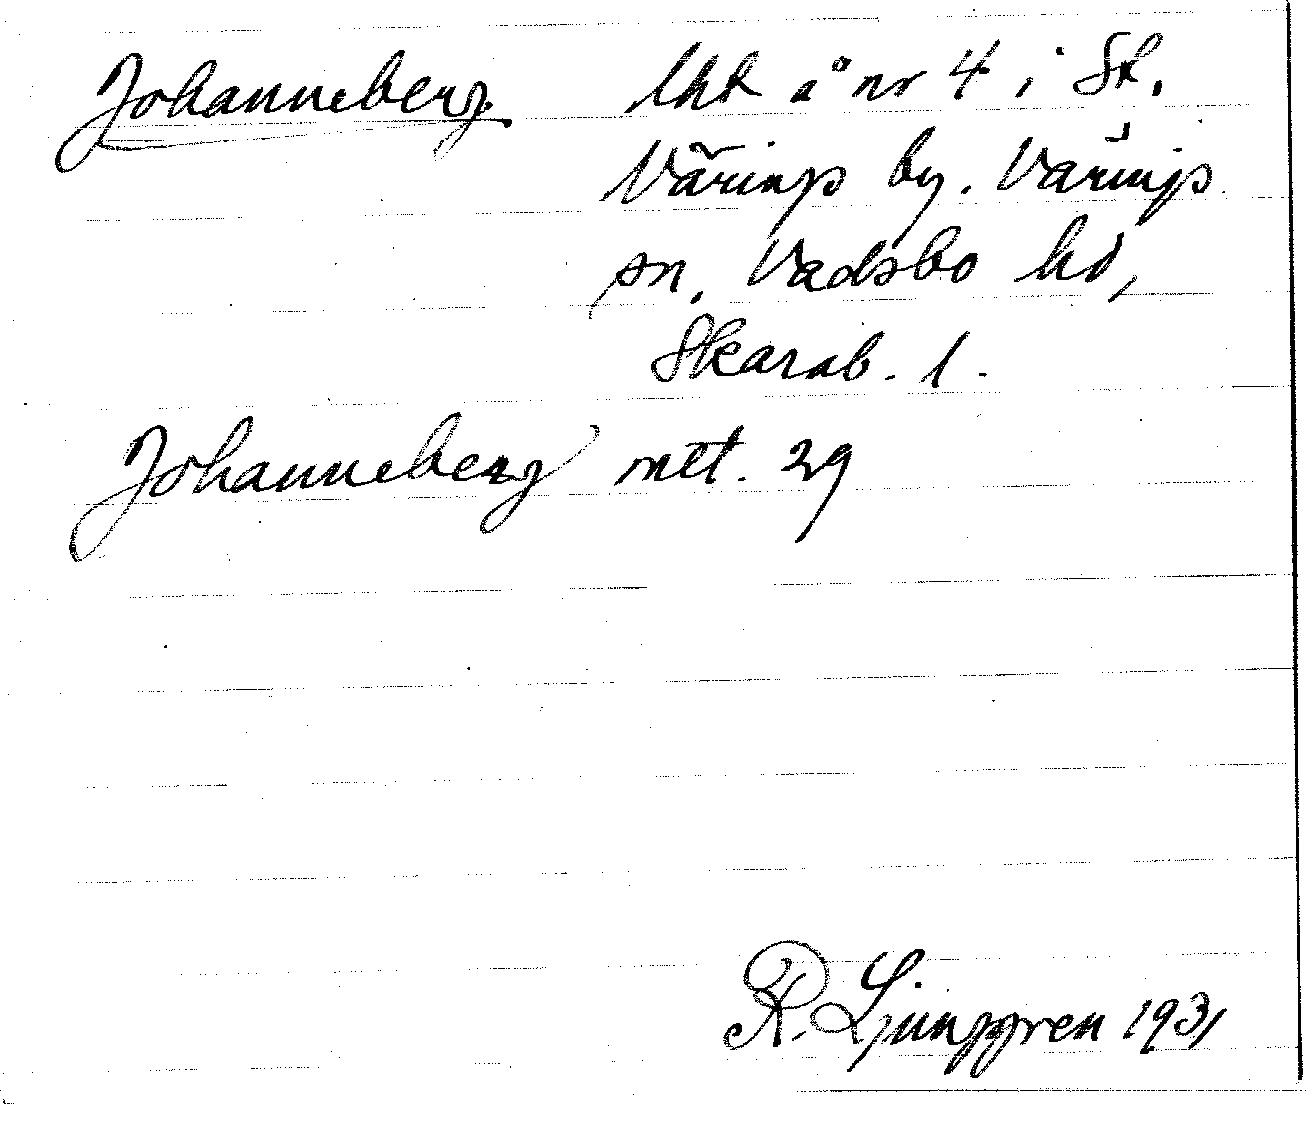 Johanneberg lht å nr 4 i St.
Värings by. Värings
sn, Vadsbo hd,
Skarab. l.
Johanneberg mtl. 29
R. Ljunggren 1931